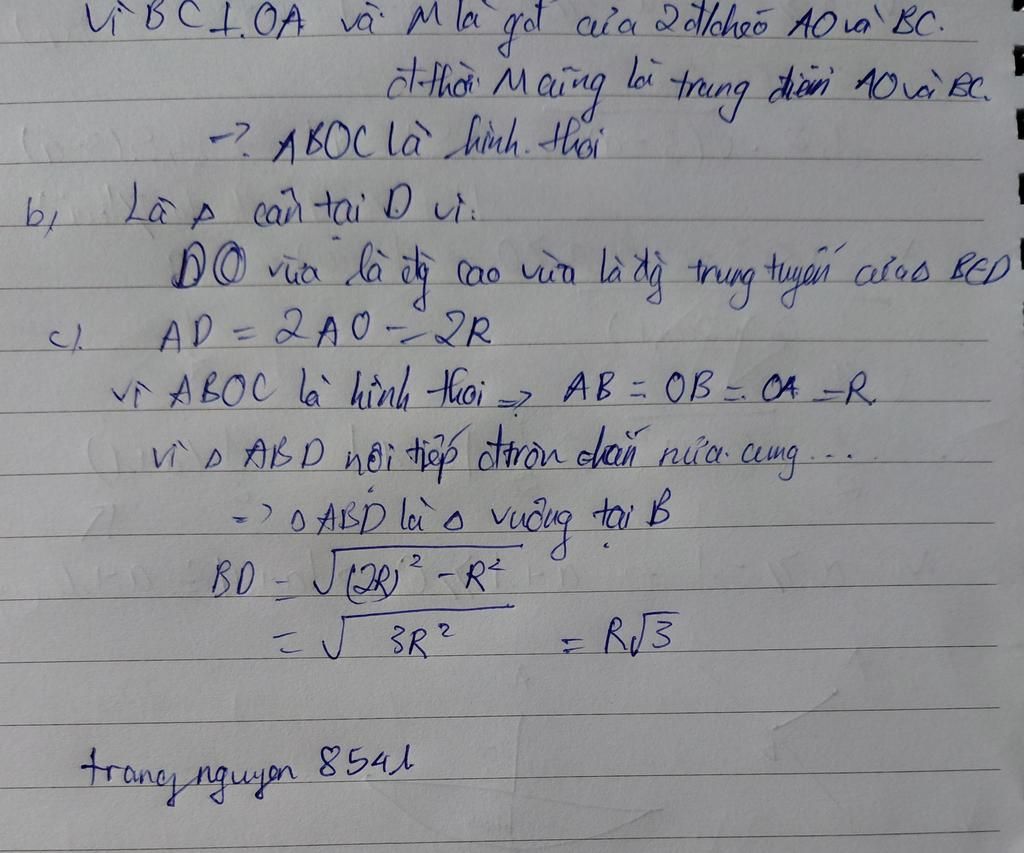 Vì BC⊥OA và M là gđ của 2 đ/chéo AO và BC.
đ.thời M cũng là trung điểm AO và BC.
-> ABOC là hình thoi
b, Là Δ cân tại D vì:
DO vừa là đg cao vừa là đg trung tuyến của Δ BED
c). AD = 2AO = 2R
vì ABOC là hình thoi => AB = OB = OA = R
vì Δ ABD nội tiếp đtròn chắn nửa cung...
=> Δ ABD là Δ vuông tại B
BD = √(2R)² - R²
= √3R² = R√3
trang nguyen 8541